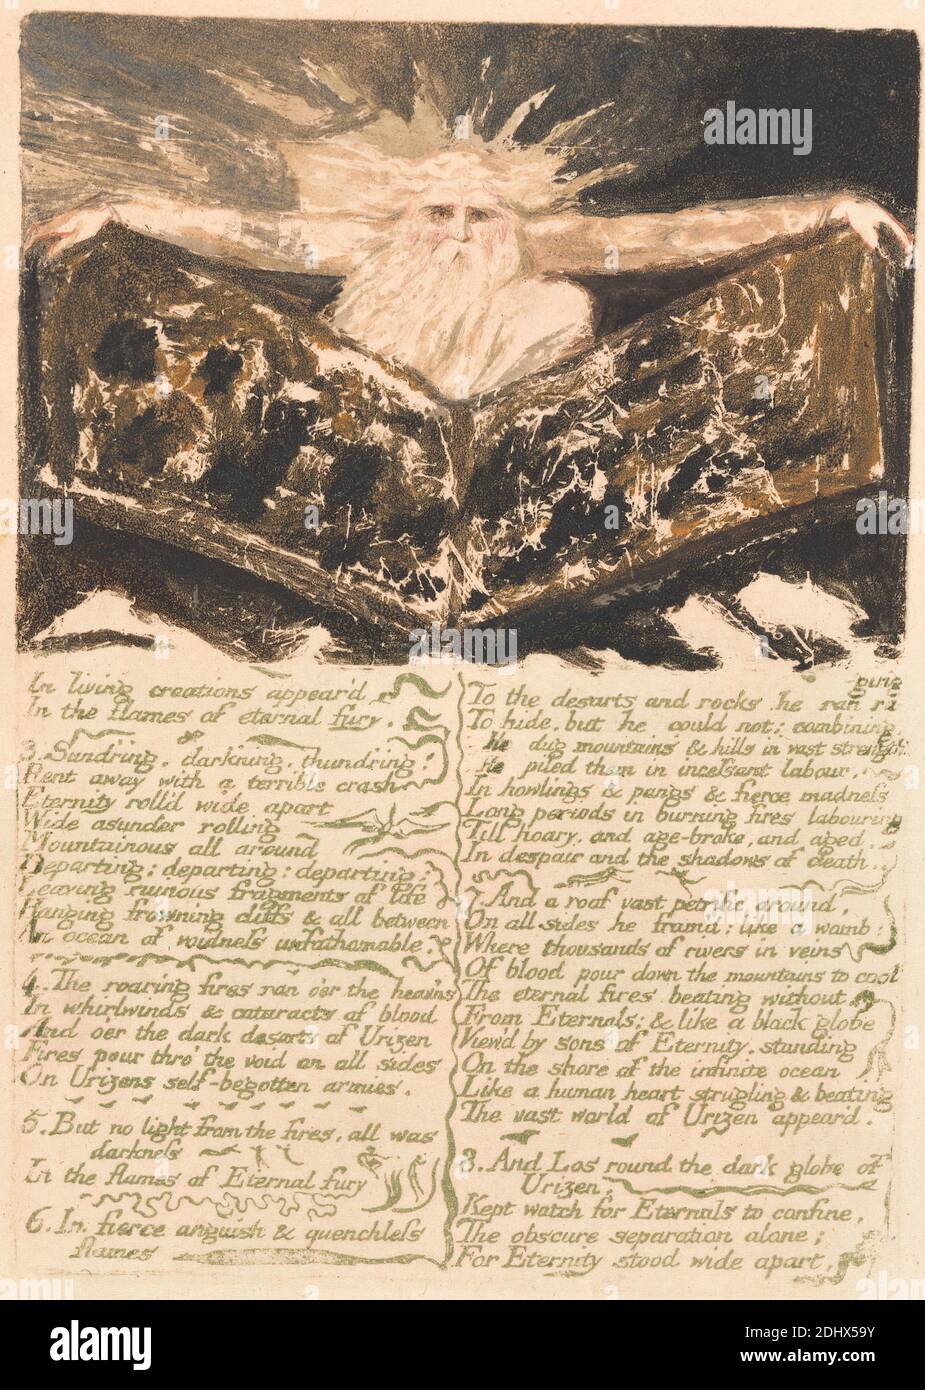 In living creations appear'd
In the flames of eternal fury.
3. Sundring, darkning, thundring:
Rent away with a terrible crash
Eternity roll'd wide apart
Wide asunder rolling
Mountainous all around
Departing: departing: departing:
Leaving ruinous fragments of life
Hanging frowning cliffs & all between
An ocean of voidness unfathomable.
4. The roaring fires ran o'er the heav'ns
In whirlwinds & cataracts of blood
And o'er the dark desarts of Urizen
Fires pour thro' the void on all sides
On Urizens self-begotten armies.
5. But no light from the fires, all was
darkness
In the flames of Eternal fury
6. In fierce anguish & quenchless
flames
-ging
To the desarts and rocks he ran ra
To hide, but he could not: combining
He dug mountains & hills in vast strength,
He piled them in incessant labour,
In howlings & pangs & fierce madness
Long periods in burning fires labouring
Till hoary, and age-broke, and aged,
In despair and the shadows of death.
7. And a roof vast petrific around,
On all sides he fram'd: like a womb:
Where thousands of rivers in veins
Of blood pour down the mountains to cool
The eternal fires beating without
From Eternals; & like a black globe
View'd by sons of Eternity, standing
On the shore of the infinite ocean
Like a human heart strugling & beating
The vast world of Urizen appear'd.
8. And Los round the dark globe of
Urizen,
Kept watch for Eternals to confine,
The obscure separation alone;
For Eternity stood wide apart,
alamy
Image ID: 2DHX59Y
www.alamy.com